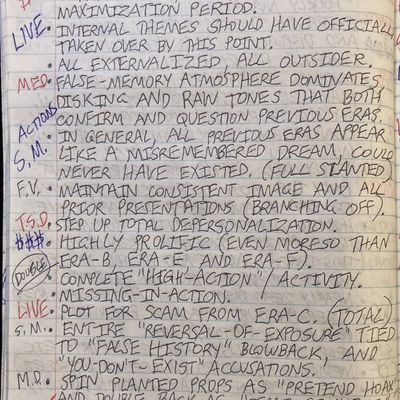 MAXIMIZATION PERIOD.
LIVE. • INTERNAL THEMES SHOULD HAVE OFFICIALLY
TAKEN OVER BY THIS POINT.
• ALL EXTERNALIZED, ALL OUTSIDER.
MED. • FALSE-MEMORY ATMOSPHERE DOMINATES,
DISKING AND RAW TONES THAT BOTH
ACTIONS CONFIRM AND QUESTION PREVIOUS ERAS.
• IN GENERAL, ALL PREVIOUS ERAS APPEAR
S.M. LIKE A MISREMEMBERED DREAM, COULD
NEVER HAVE EXISTED. (FULL SLANTED)
F.V. • MAINTAIN CONSISTENT IMAGE AND ALL
PRIOR PRESENTATIONS (BRANCHING OFF).
T.S.D. • STEP UP TOTAL DEPERSONALIZATION.
$$$. • HIGHLY PROLIFIC (EVEN MORESO THAN
ERA-B, ERA-E AND ERA-F).
DOUBLE • COMPLETE "HIGH-ACTION"/ACTIVITY.
• MISSING-IN-ACTION.
LIVE. • PLOT FOR SCAM FROM ERA-C. (TOTAL)
S.M. • ENTIRE "REVERSAL-OF-EXPOSURE" TIED
TO "FALSE HISTORY" BLOWBACK, AND
"YOU-DON'T-EXIST" ACCUSATIONS.
M.D. • SPIN PLANTED PROPS AS "PRETEND HOAX"
AND DOUBLE BACK AS